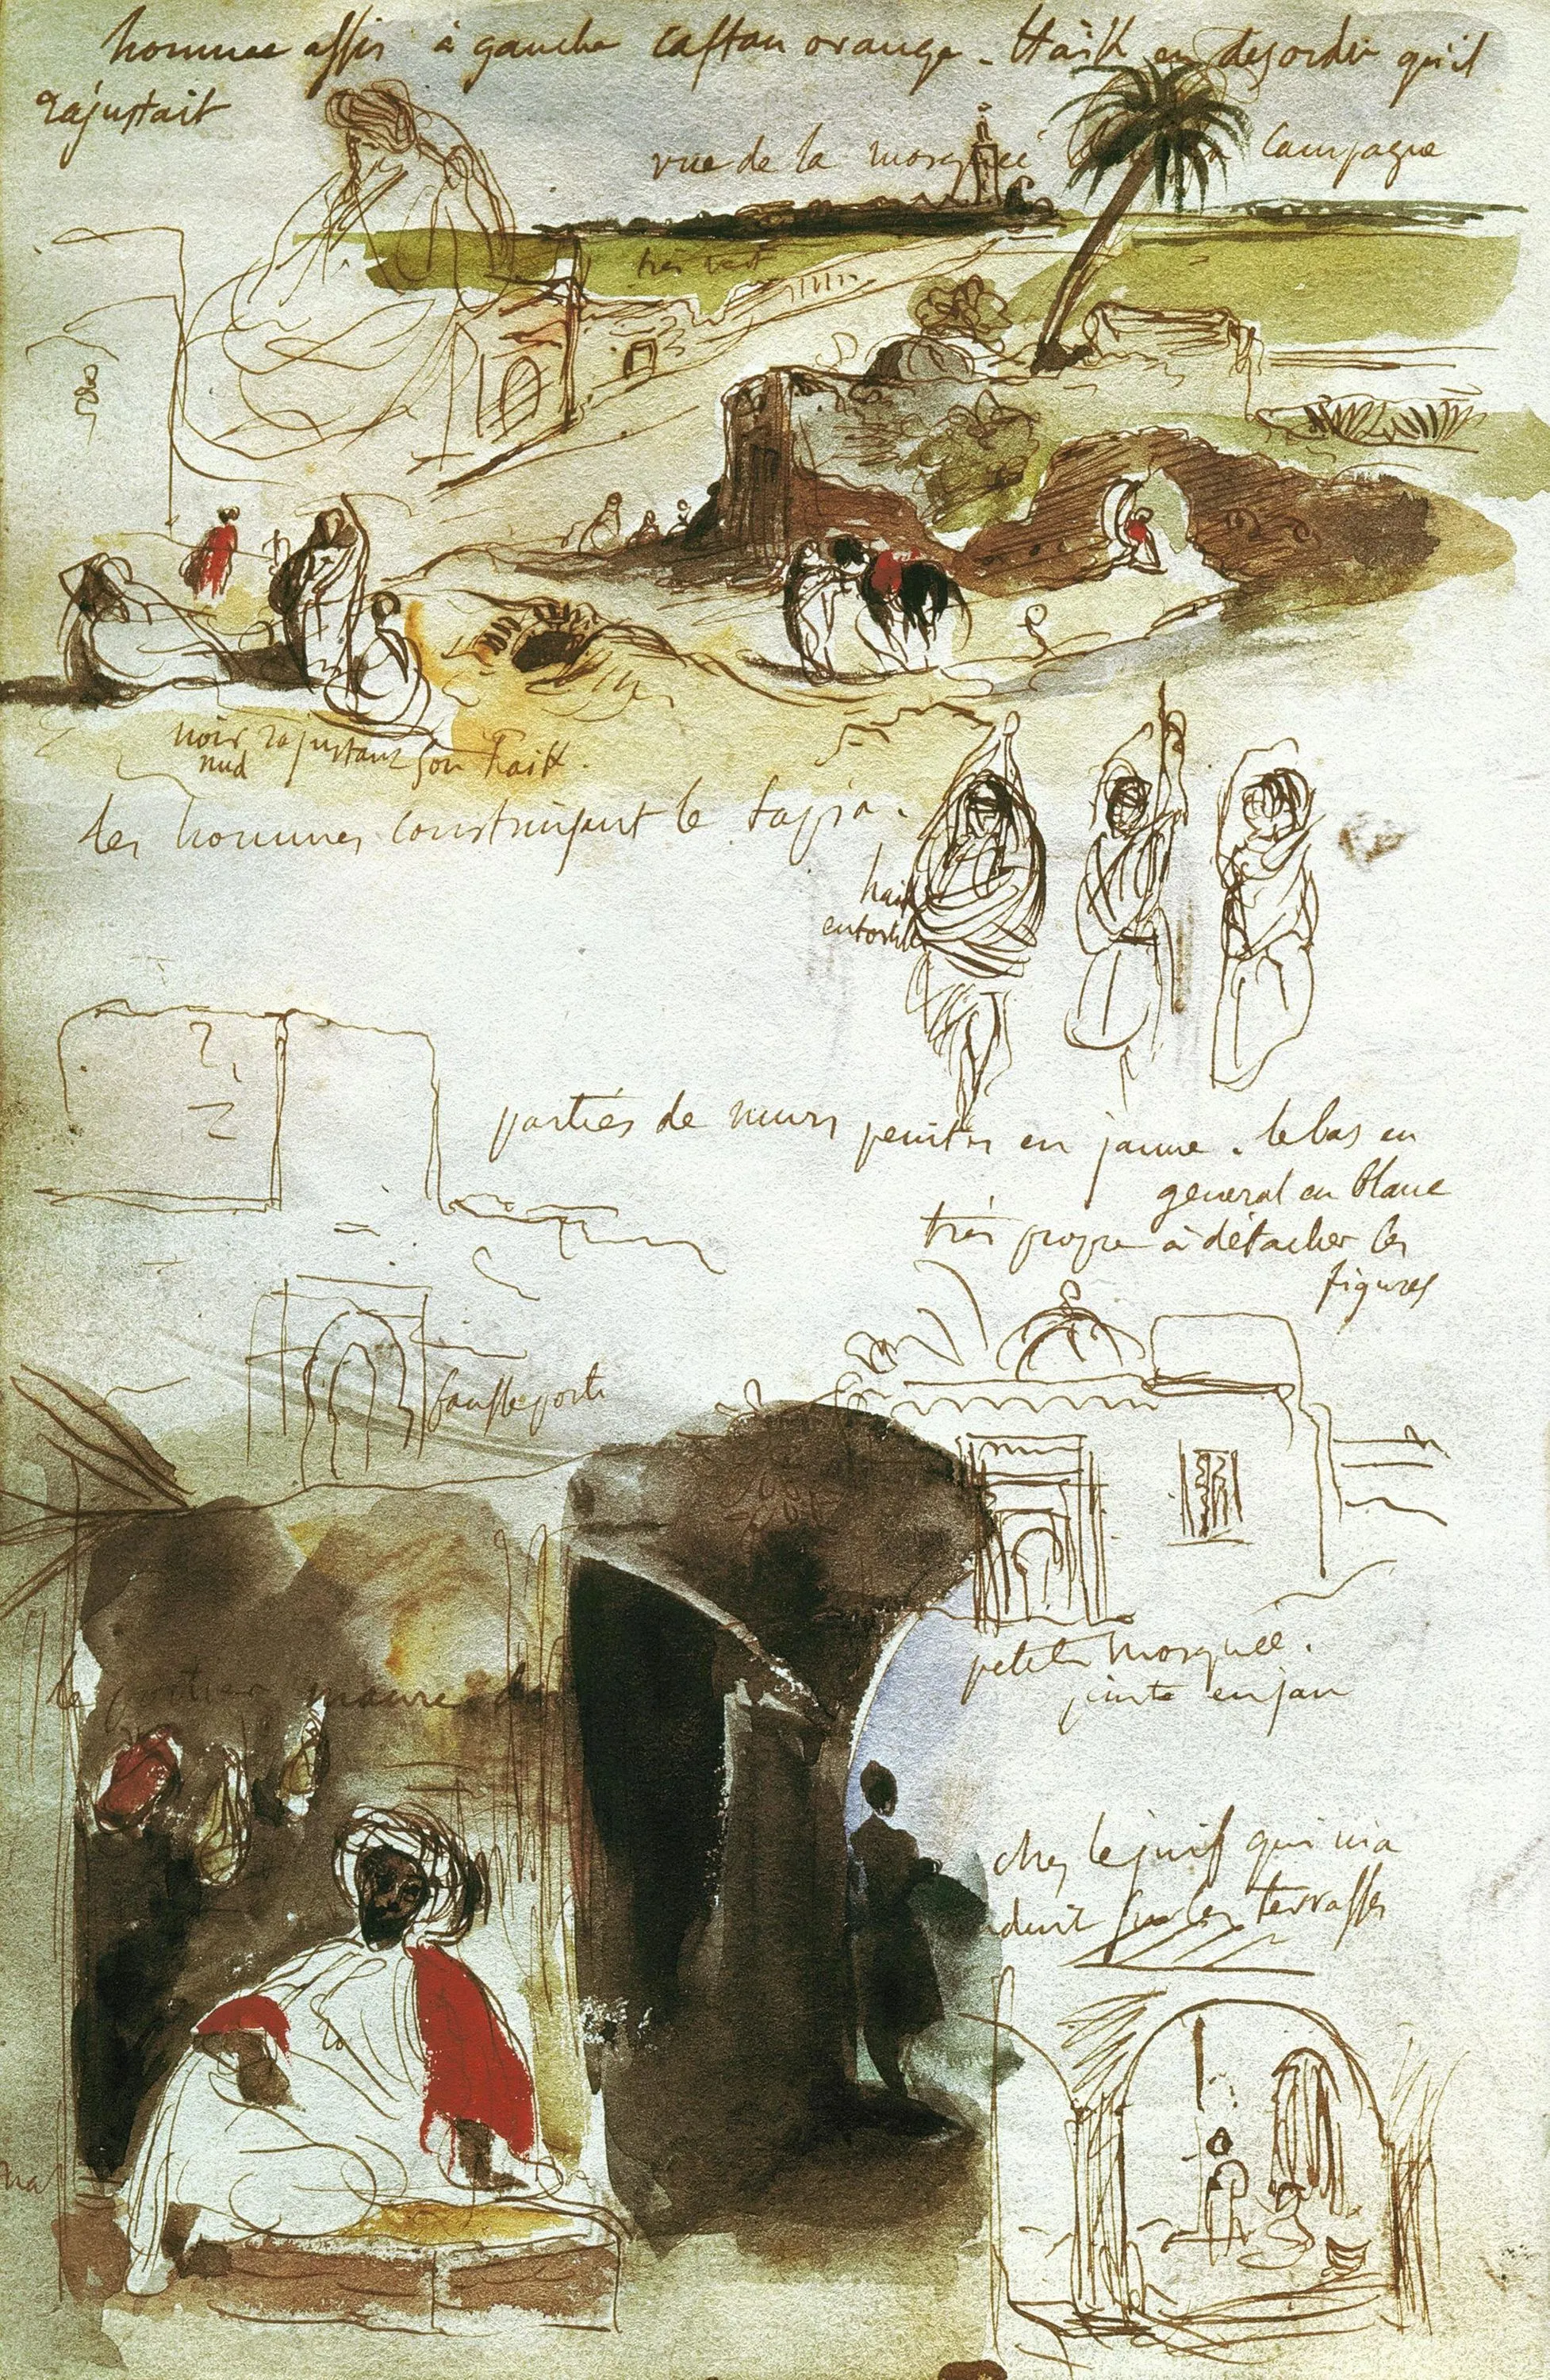 homme assis à gauche caftan orange. Haïk en desordre qu'il
rajustait
vue de la mosquée la campagne
très vert
noir rajustant son haik.
nud
les hommes construisant le tapia.
haik
entortillé
parties de murs peintes en jaune. le bas en
general en blanc
très propre à détacher les
figures
fausse porte
petite mosquée.
peinte en jau
le portier maure
chez le juif qui m'a
duit sur les terrasses